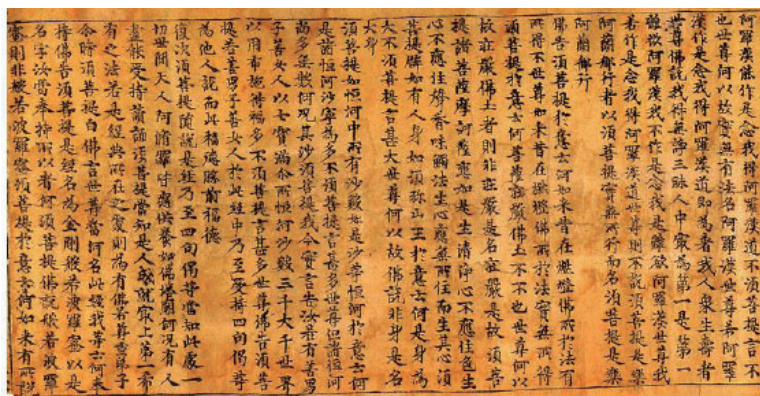 阿羅漢能作是念我得阿羅漢道不須菩提言不
也世尊何以故實無有法名阿羅漢世尊若阿羅
漢作是念我得阿羅漢道即為著我人衆生壽者
世尊佛說我得無諍三昧人中最為第一是第一
離欲阿羅漢我不作是念我是離欲阿羅漢世尊我
若作是念我得阿羅漢道世尊則不說須菩提是樂
阿蘭那行者以須菩提實無所行而名須菩提是樂
阿蘭那行
佛告須菩提於意云何如來昔在燃燈佛所於法有
所得不世尊如來昔在燃燈佛所於法實無所得
須菩提於意云何菩薩莊嚴佛土不不也世尊何以
故莊嚴佛土者則非莊嚴是名莊嚴是故須菩
提諸菩薩摩訶薩應如是生清淨心不應住色生
心不應住聲香味觸法生心應無所住而生其心須
菩提譬如有人身如須弥山王於意云何是身為
大不須菩提言甚大世尊何以故佛說非身是名
大身
須菩提如恒河中所有沙數如是沙等恒河於意云何
是諸恒河沙寧為多不須菩提言甚多世尊但諸恒河
尚多無數何況其沙須菩提我今實言告汝若有善男
子善女人以七寶滿尒所恒河沙數三千大千世界
以用布施得福多不須菩提言甚多世尊佛告須菩
提若善男子善女人於此經中乃至受持四句偈等
為他人說而此福德勝前福德
復次須菩提隨說是經乃至四句偈等當知此處一
切世間天人阿脩羅皆應供養如佛塔廟何況有人
盡能受持讀誦須菩提當知是人成就最上第一希
有之法若是經典所在之處則為有佛若尊重弟子
尒時須菩提白佛言世尊當何名此經我等云何奉
持佛告須菩提是經名為金剛般若波羅蜜以是
名字汝當奉持所以者何須菩提佛說般若波羅
蜜則非般若波羅蜜須菩提於意云何如來有所說